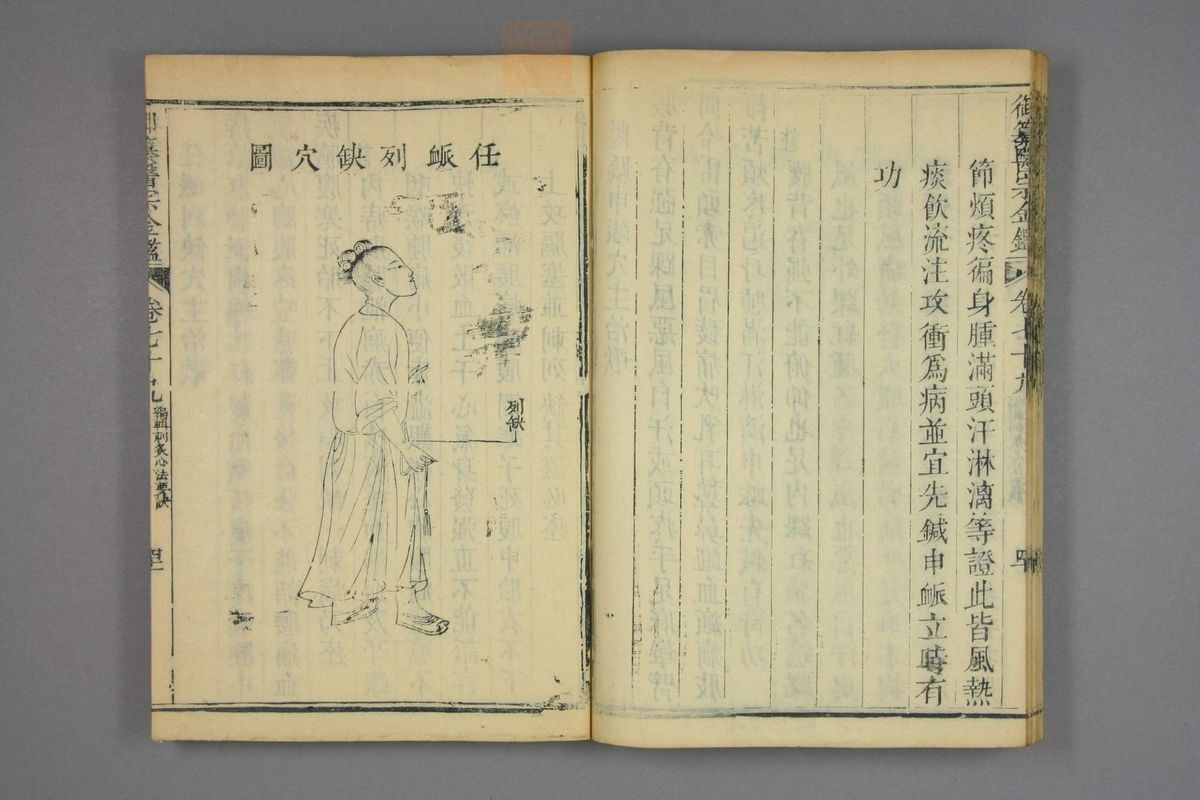 御纂醫宗金鑑
卷七十九
節煩疼徧身腫滿頭汗淋漓等證此皆風熱
痰飲流注攻衝爲病並宜先鍼申脈立時有
功
任脈列缺穴圖
列缺
纂醫宗金鑑
卷七十九
編輯刺灸心法要訣